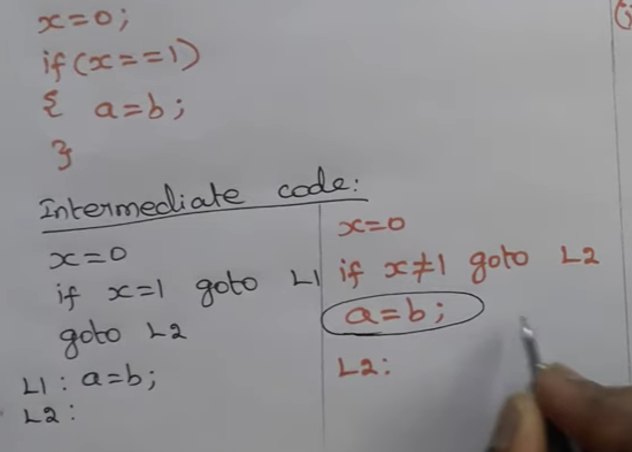 x=0;
if(x==1)
{ a=b;
}
Intermediate code:
x=0
if x=1 goto L1
goto L2
L1: a=b;
L2:
x=0
if x≠1 goto L2
a=b;
L2: